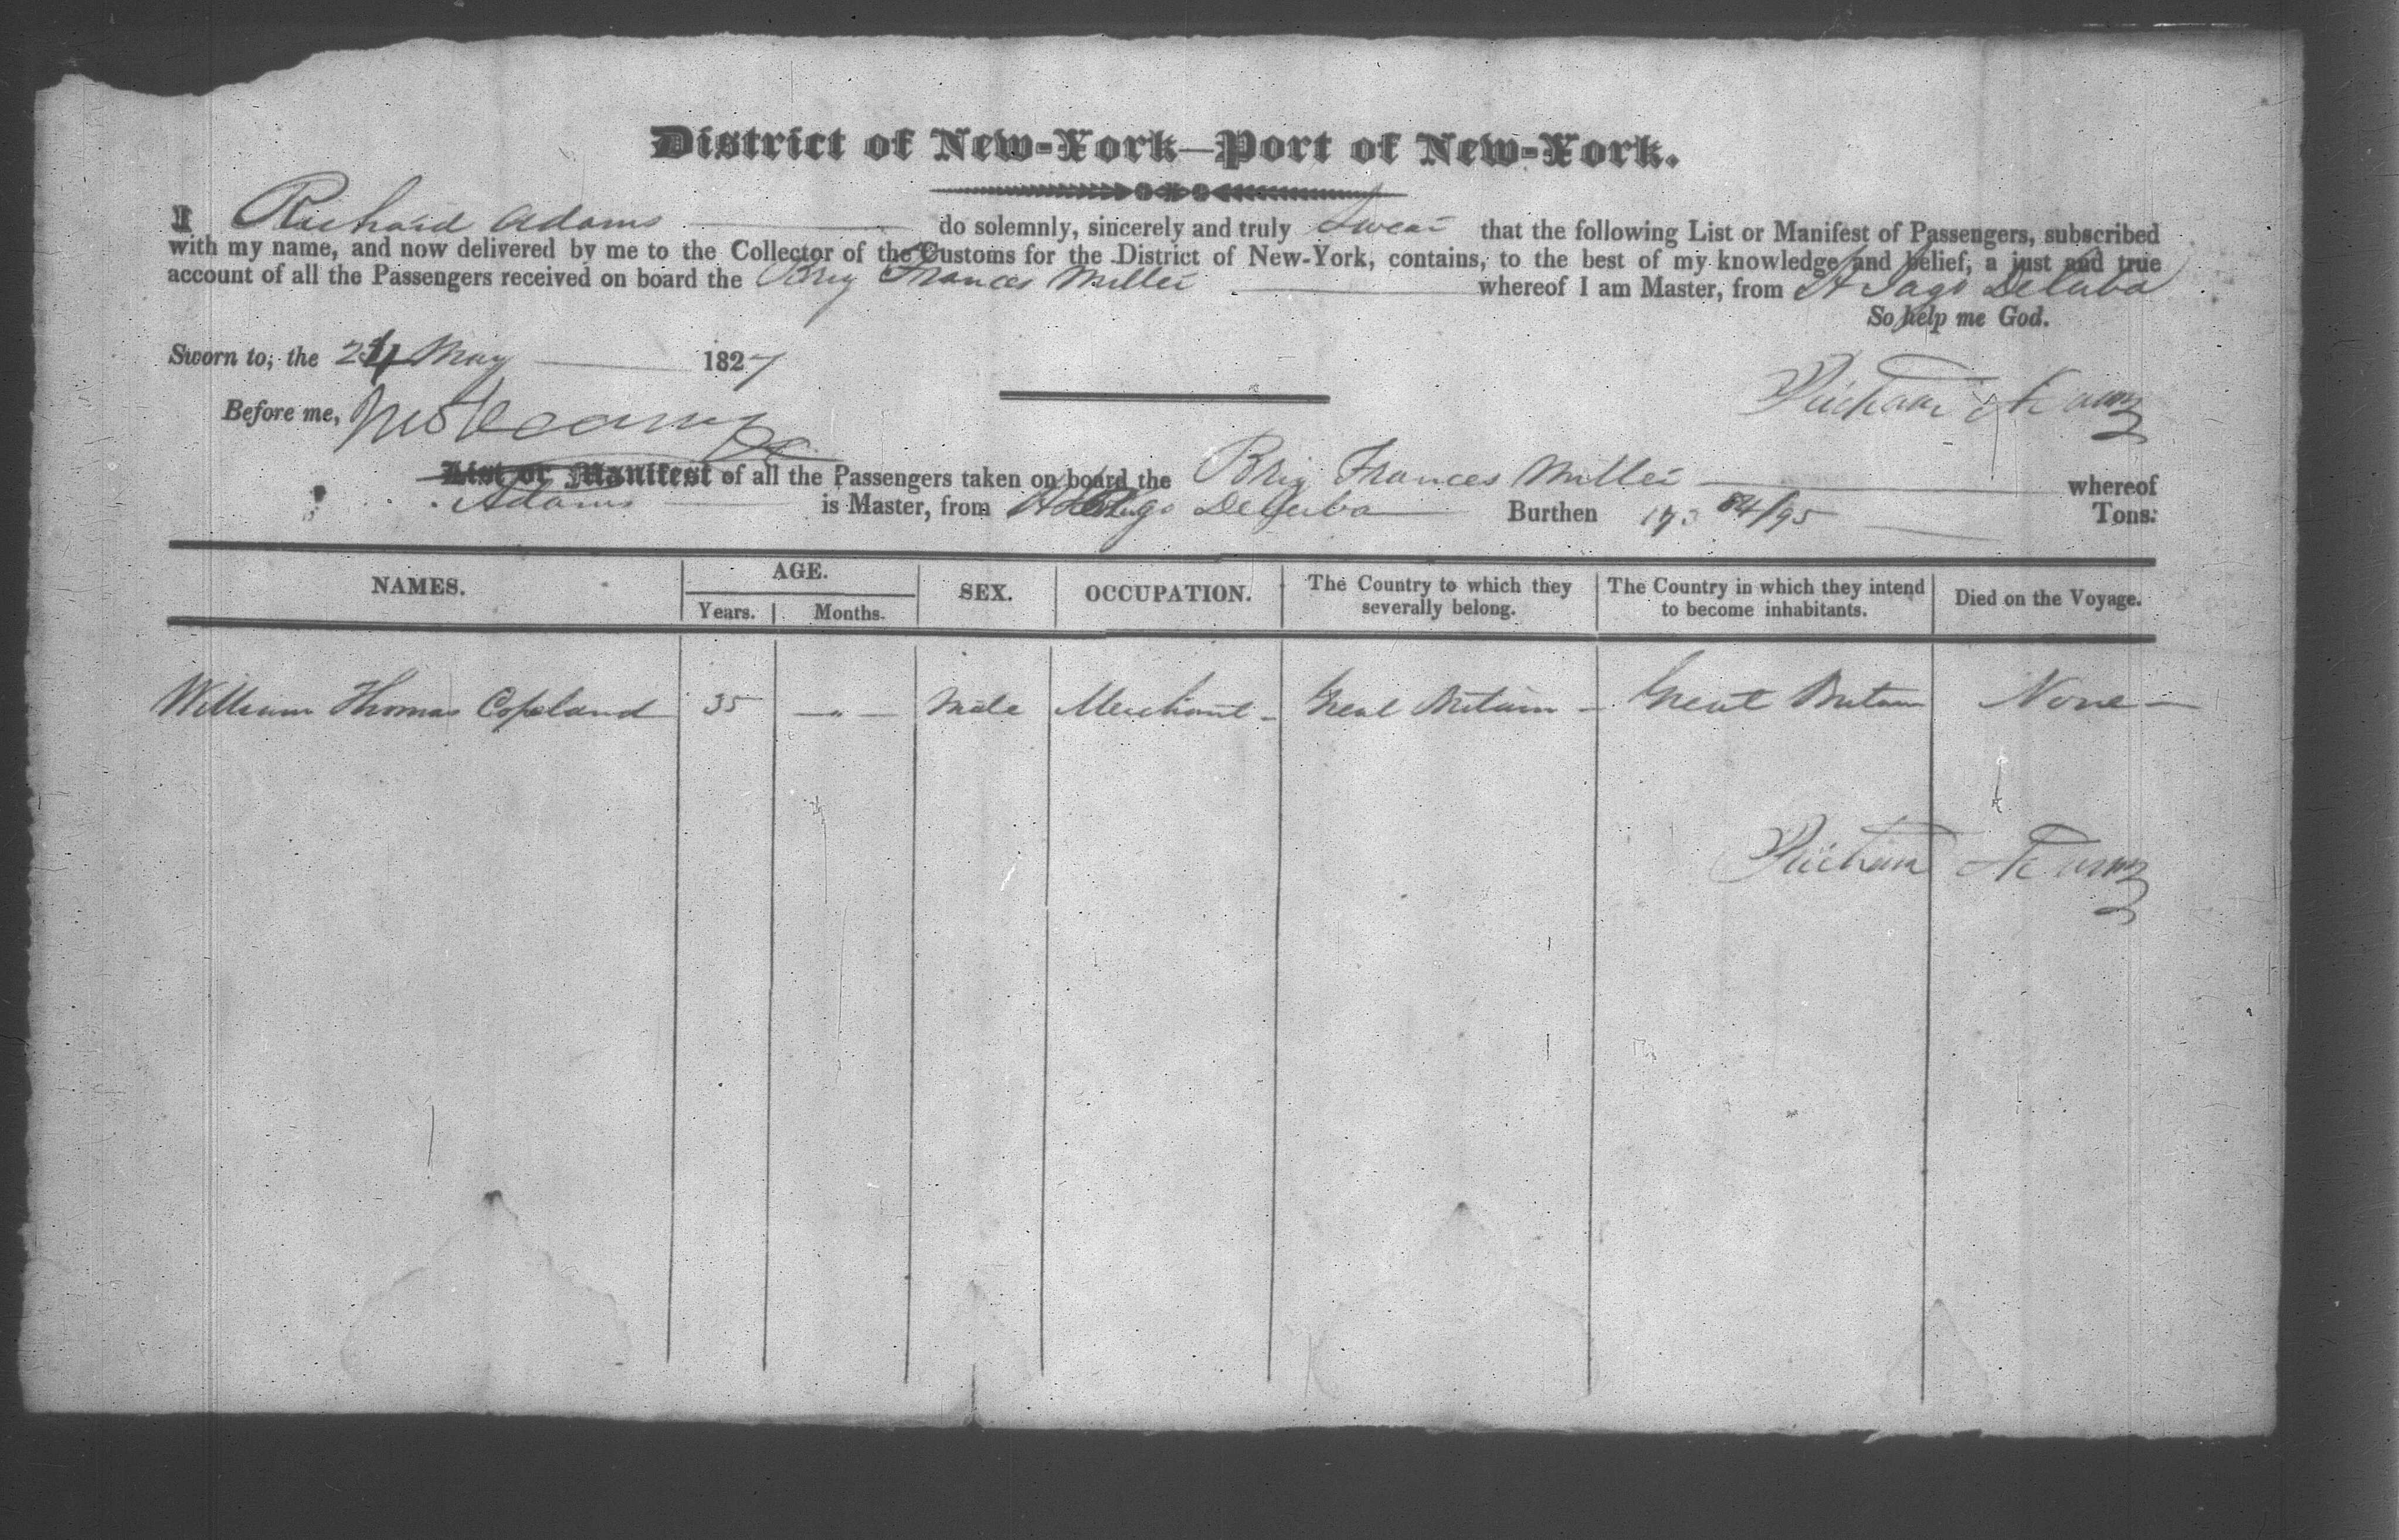 District of New-York—Port of New-York.
I Richard Adams do solemnly, sincerely and truly Swear that the following List or Manifest of Passengers, subscribed
with my name, and now delivered by me to the Collector of the Customs for the District of New-York, contains, to the best of my knowledge and belief, a just and true
account of all the Passengers received on board the Brig Frances Miller whereof I am Master, from St Jago De Cuba
So help me God.
Sworn to, the 24 May 1827
Before me,
Richard Adams
List or Manifest of all the Passengers taken on board the Brig Frances Miller whereof
Adams is Master, from St Jago De Cuba Burthen 173 84/95 Tons.
NAMES. AGE. SEX. OCCUPATION. The Country to which they severally belong. The Country in which they intend to become inhabitants. Died on the Voyage.
Years. Months.
William Thomas Copeland 35 — " — Male Merchant - Great Britain - Great Britain None —
Richard Adams